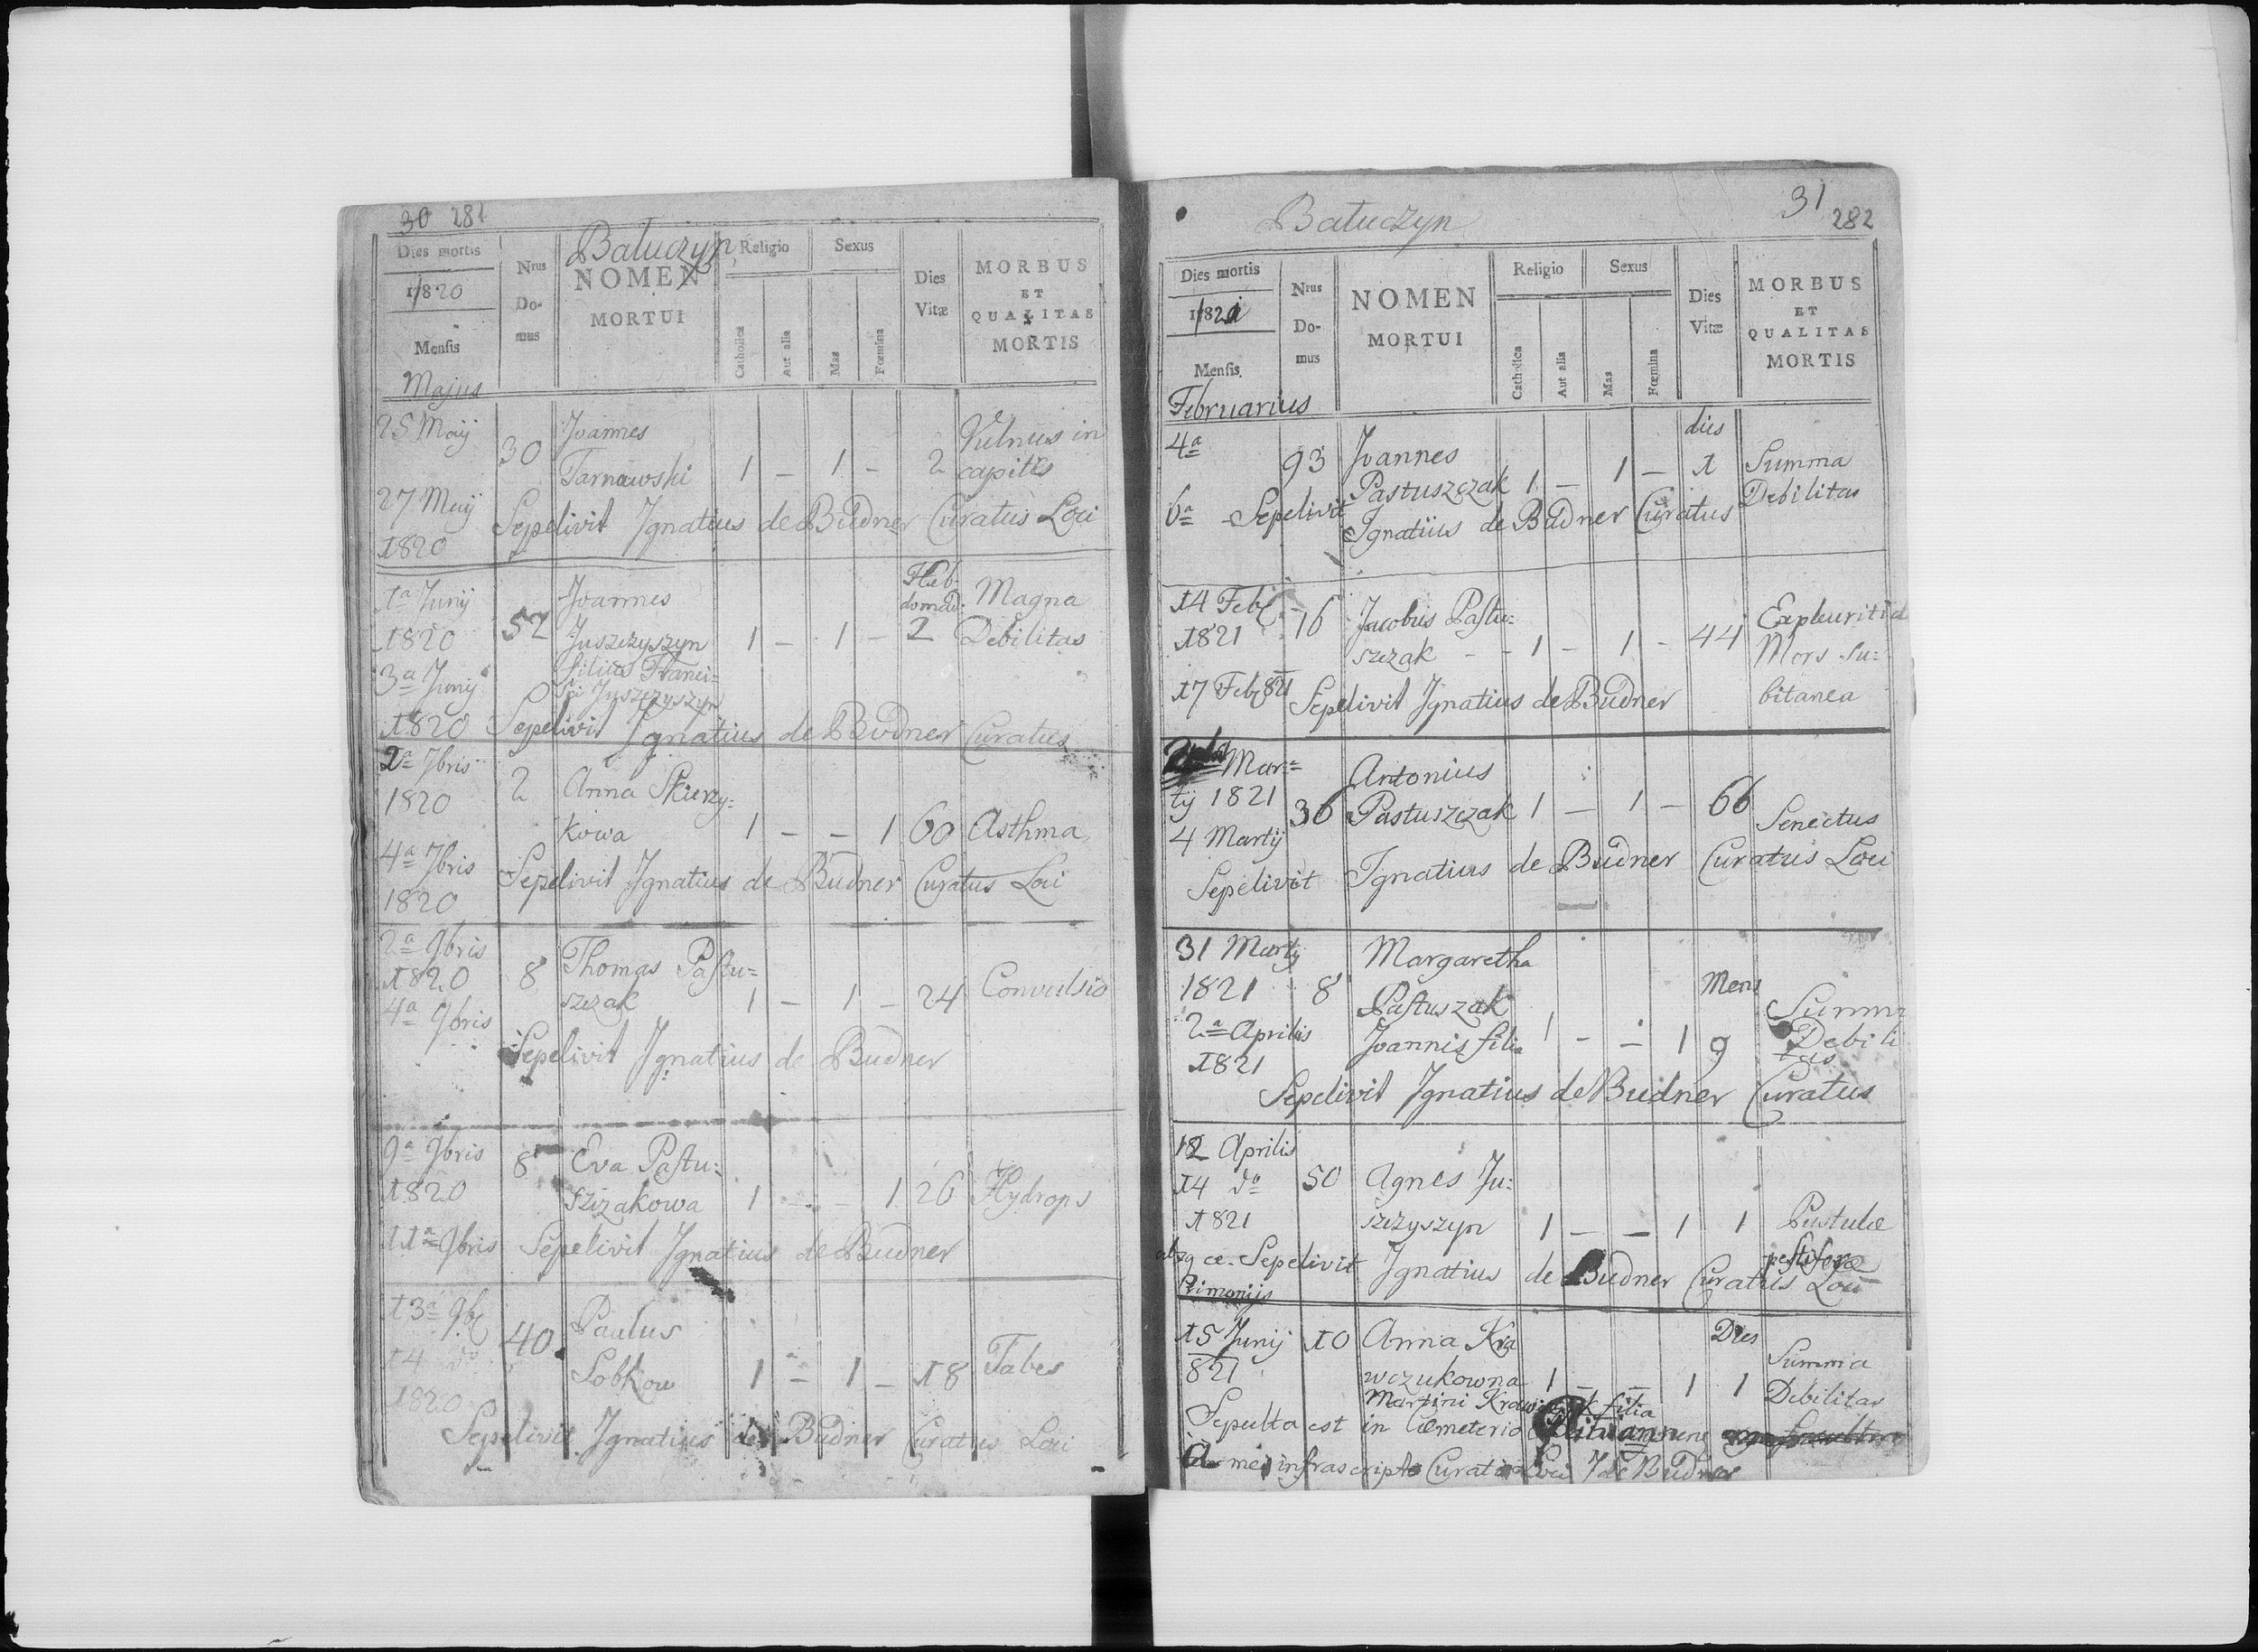 30 281
Baluczyn
Dies mortis
1/820
Mensis
Majus
Nrus
Do-
mus
NOMEN
MORTUI
Religio
Catholica
Aut alia
Sexus
Mas
Fœmina
Dies
Vitæ
MORBUS
ET
QUALITAS
MORTIS
25 Maij 30 Joannes Vulnus in
Tarnawski 1 – 1 – 2 capitis
27 Maij Sepelivit Ignatius de Budner Curatus Loci
1820
1a Junij 52 Joannes Heb- Magna
domad.
1820 Juszczyszyn 1 – 1 – 2 Debilitas
3a Junij filius Franci=
sci Juszczyszyn
1820 Sepelivit Ignatius de Budner Curatus
2a 7bris 2 Anna Skierzy=
1820 kowa 1 – – 1 60 Asthma
4a 7bris Sepelivit Ignatius de Budner Curatus Loci
1820
2a 9bris 8 Thomas Pastu=
1820 szczak 1 – 1 – 24 Convulsio
4a 9bris
Sepelivit Ignatius de Budner
9a 9bris 8 Eva Pastu=
1820 szczakowa 1 – – 1 26 Hydrops
11a 9bris Sepelivit Ignatius de Budner
13a 9b 40 Paulus
14 do Sobkow 1 – 1 – 18 Tabes
1820
Sepelivit Ignatius de Budner Curatus Loci
Baluczyn
31
282
Dies mortis
1/821
Mensis
Februarius
Nrus
Do-
mus
NOMEN
MORTUI
Religio
Catholica
Aut alia
Sexus
Mas
Fœmina
Dies
Vitæ
MORBUS
ET
QUALITAS
MORTIS
dies
4a 93 Joannes 1 – 1 Summa
Pastuszczak 1 – Debilitas
6a Sepelivit Ignatius de Budner Curatus
14 Feb 16 Jacobus Pastu=
1821 szczak – – 1 – 1 – 44 Mors su=
17 Feb 821 Sepelivit Ignatius de Budner bitanea
Mar=
tij 1821 36 Antonius
Pastuszczak 1 – 1 – 66 Senectus
4 Martij
Sepelivit Ignatius de Budner Curatus Loci
31 Martij Margaretha
1821 8 Pastuszak Mens Summa
2a Aprilis Joannis filia 1 – – 1 9 Debili
1821 tas
Sepelivit Ignatius de Budner Curatus
12 Aprilis
14 do 50 Agnes Ju=
1821 szczyszyn 1 – – 1 1 Pustulæ
pestiferæ
Sepelivit Ignatius de Budner Curatus Loci
15 Junij 10 Anna Kra Dies
821 wczukowna 1 – – 1 1 Summa
Debilitas
Martini filia
Sepulta est in Cœmeterio
a me infrascripto Curato Loci J de Budner